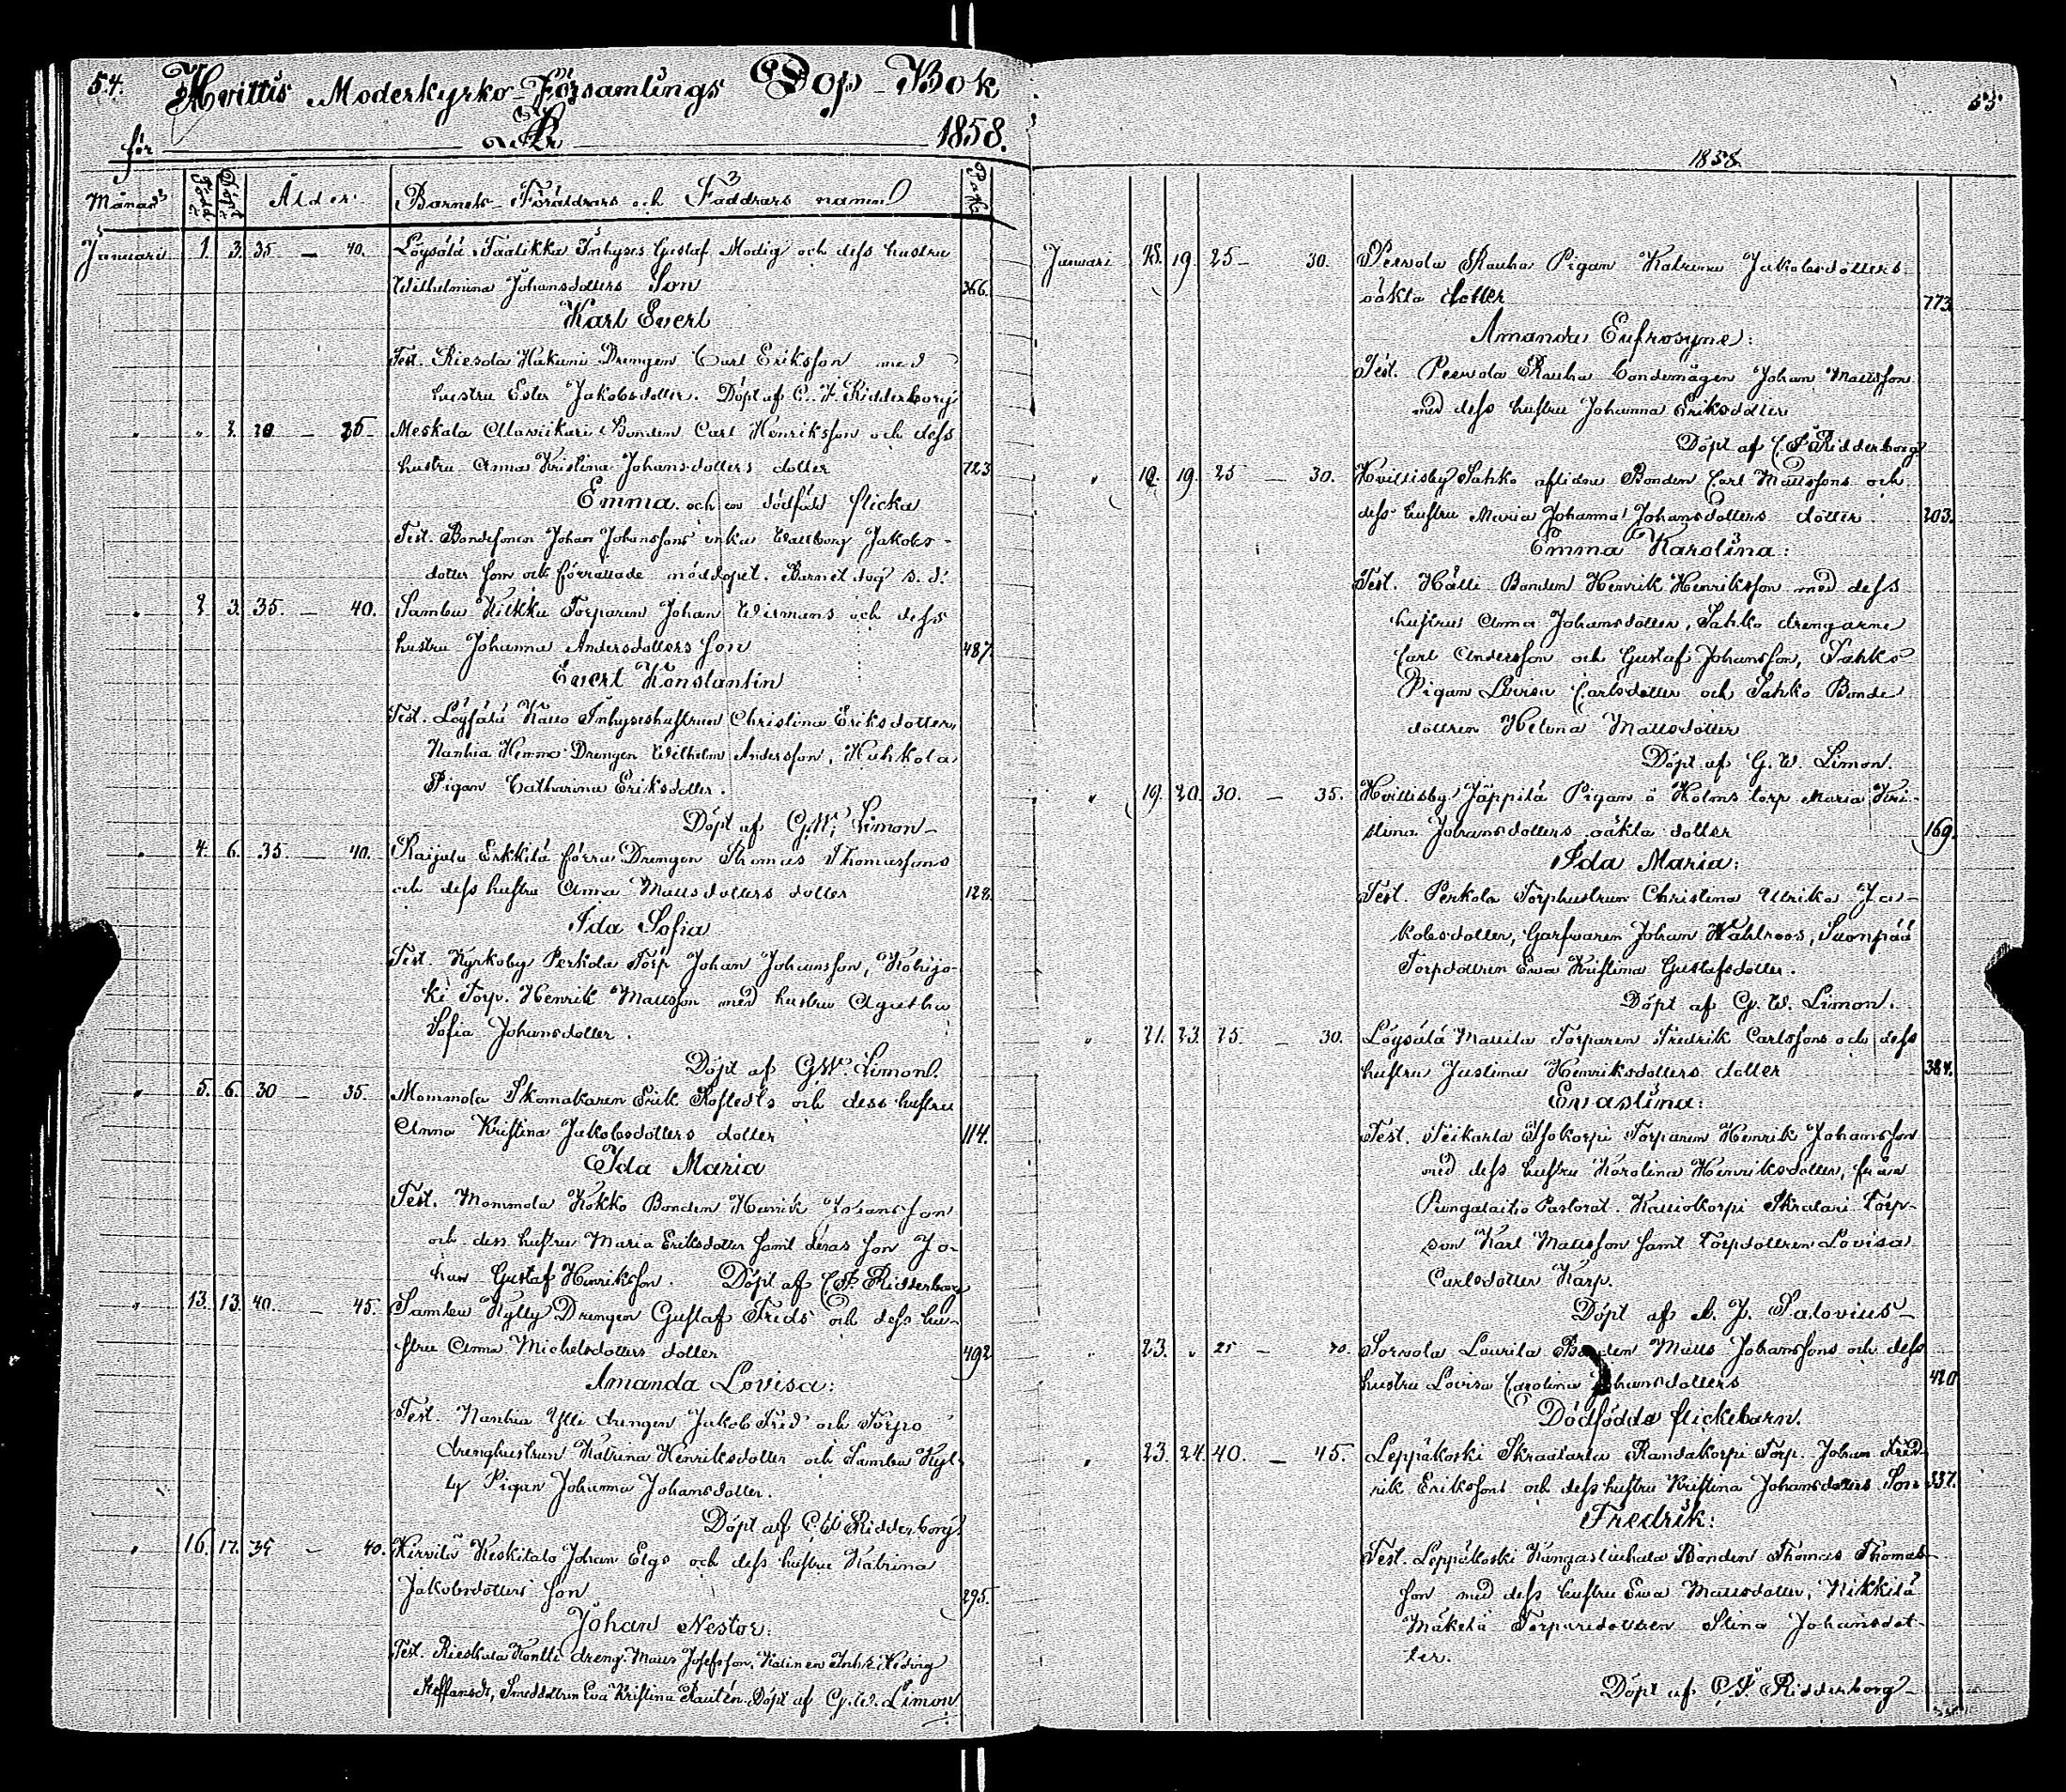 54. Hvittis Moderkyrko-Församlings Dop-Bok
för År 1858.
Månad Född Döpt Ålder Barnets Föräldrars och Faddrars namn Pag.
Januari 1. 3. 35 — 40. Löysälä Taatikka Inhyses Gustaf Modig och dess hustru
Wilhelmina Johansdotters Son 266.
Karl Evert
Test. Riesola Hakuni Drengen Carl Eriksson med
hustru Ester Jakobsdotter. Döpt af C. F. Ridderborg
" " 2. 20 — 25 Meskala Bonden Carl Henriksson och dess
hustru Anna Kristina Johansdotters dotter 723
Emma och en dödfödd flicka
Test. Bondesonen Johan Johanssons enka Wallborg Jakobs-
dotter som ock förrättade nöddopet. Barnet dog s. d.
" 2. 3. 35. — 40. Sambu Kilkku Torparen Johan Widmans och dess
hustru Johanna Andersdotters son 487.
Evert Konstantin
Test. Löysälä Katto Inhyseshustrun Christina Eriksdotter,
Nanhia Hemmo Drengen Wilhelm Andersson, Huhkola
Pigan Catharina Eriksdotter.
Döpt af G.W. Limon
" 4. 6. 35. — 40. Raijala Erkkilä förra Drengen Thomas Thomassons
och dess hustru Anna Mattsdotters dotter 128.
Ida Sofia
Test. Kyrkoby Perkola Torp. Johan Johansson, Kohijo-
ki Torp. Henrik Mattsson med hustru Agatha
Sofia Johansdotter.
Döpt af G.W. Limon.
" 5. 6. 30 — 35. Mommola Skomakaren Erik Rostedts och dess hustru
Anna Kristina Jakobsdotters dotter 114.
Ida Maria
Test. Mommola Kokko Bonden Henrik Johansson
och dess hustru Maria Eriksdotter samt deras son Jo-
han Gustaf Henriksson. Döpt af C.F. Ridderborg
" 13. 13. 40. — 45. Sambu Kylly Drengen Gustaf Freds och dess hu-
stru Anna Michelsdotters dotter 492
Amanda Lovisa:
Test. Nanhia Ylli drengen Jakob Fred och Torpo
drenghustrun Katrina Henriksdotter och Sambu Kyl-
ly Pigan Johanna Johansdotter.
Döpt af C.F. Ridderborg.
" 16. 17. 35 — 40. Kirvilä Keskitalo Johan Elgs och dess hustru Katrina
Jakobsdotters son 295.
Johan Nestor:
Test. Rieskala Kontti dreng. Matts Josefsson, Kalinen Inh: Hedvig
Steffansdr, Smeddottren Eva Kristina Rautén. Döpt af G.W. Limon
55
1858.
Januari 18. 19. 25 — 30. Peevola Rauha Pigan Katrina Jakobsdotters
oäkta dotter 773.
Amanda Eufrosyne:
Test. Peevola Rauha bondemågen Johan Mattsson
med dess hustru Johanna Eriksdotter
Döpt af C.F. Ridderborg
" 19. 25 — 30. Hvittisby Sahko aflidne Bonden Carl Mattssons och
dess hustru Maria Johanna Johansdotters dotter 203.
Emma Karolina:
Test. Hälli Bonden Henrik Henriksson med dess
hustru Anna Johansdotter, Sahko drengarne
Carl Andersson och Gustaf Johansson, Sahko
Pigan Lovisa Carlsdotter och Sahko Bonde
dottren Helena Mattsdotter
Döpt af G. W. Limon.
" 19. 20. 30. — 35. Hvittisby Jäppilä Pigan å Holms torp Maria Kri-
stina Johansdotters oäkta dotter 169.
Ida Maria:
Test. Perkola Torphustrun Christina Ulrika Ja-
kobsdotter, Garfvaren Johan Wahlroos, Suonpää
Torpdottren Ewa Kristina Gustafsdotter.
Döpt af G. W. Limon.
" 21. 23. 25. — 30. Löysälä Mattila Torparen Fredrik Carlssons och dess
hustru Justina Henriksdotters dotter 384.
Evastina:
Test. Seikarla Isokorpi Torparen Henrik Johansson
med dess hustru Karolina Henriksdotter, från
Pungalaitio Pastorat. Kalliokorpi Skralari Torp-
son Karl Mattsson samt torpdottren Lovisa
Carlsdotter Karp.
Döpt af J. Salovius
" 23. " 25 — 30. Sorvola Laurila Bonden Matts Johanssons och dess
hustru Lovisa Carolina Johansdotters 420
Dödfödda flickebarn.
" 23. 24. 40. — 45. Leppäkoski Skraatarla Randakorpi Torp. Johan Fred-
rik Erikssons och dess hustru Kristina Johansdotters Son 337.
Fredrik:
Test. Leppäkoski Kangasliuhala Bonden Thomas Thomas-
son med dess hustru Ewa Mattsdotter, Nikkilä
Mäkelä Torparedottren Stina Johansdot-
ter.
Döpt af C.F. Ridderborg